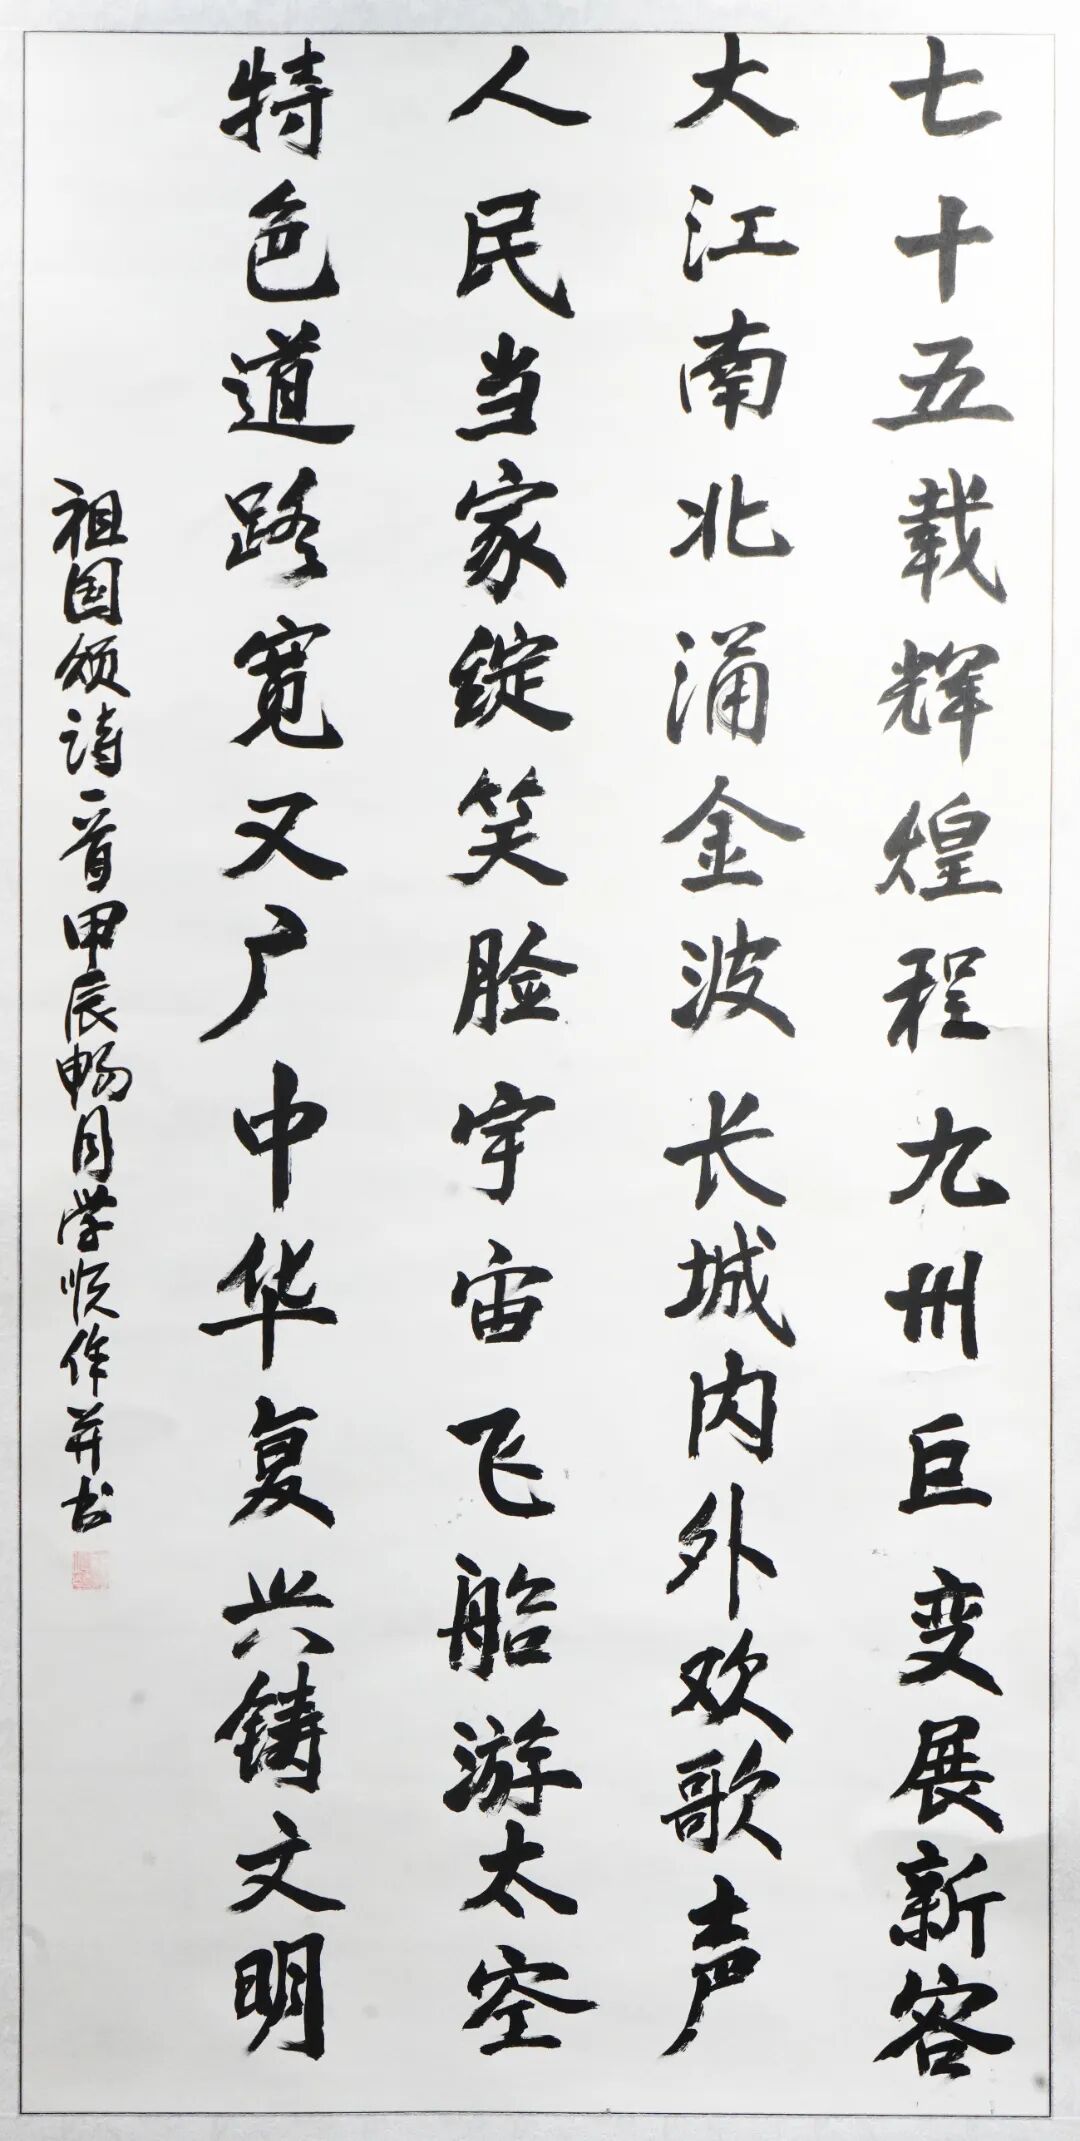 七十五载辉煌程九州巨变展新容
大江南北涌金波长城内外欢歌声
人民当家绽笑脸宇宙飞船游太空
特色道路宽又广中华复兴铸文明
祖国颂诗一首甲辰畅月学顺作并书